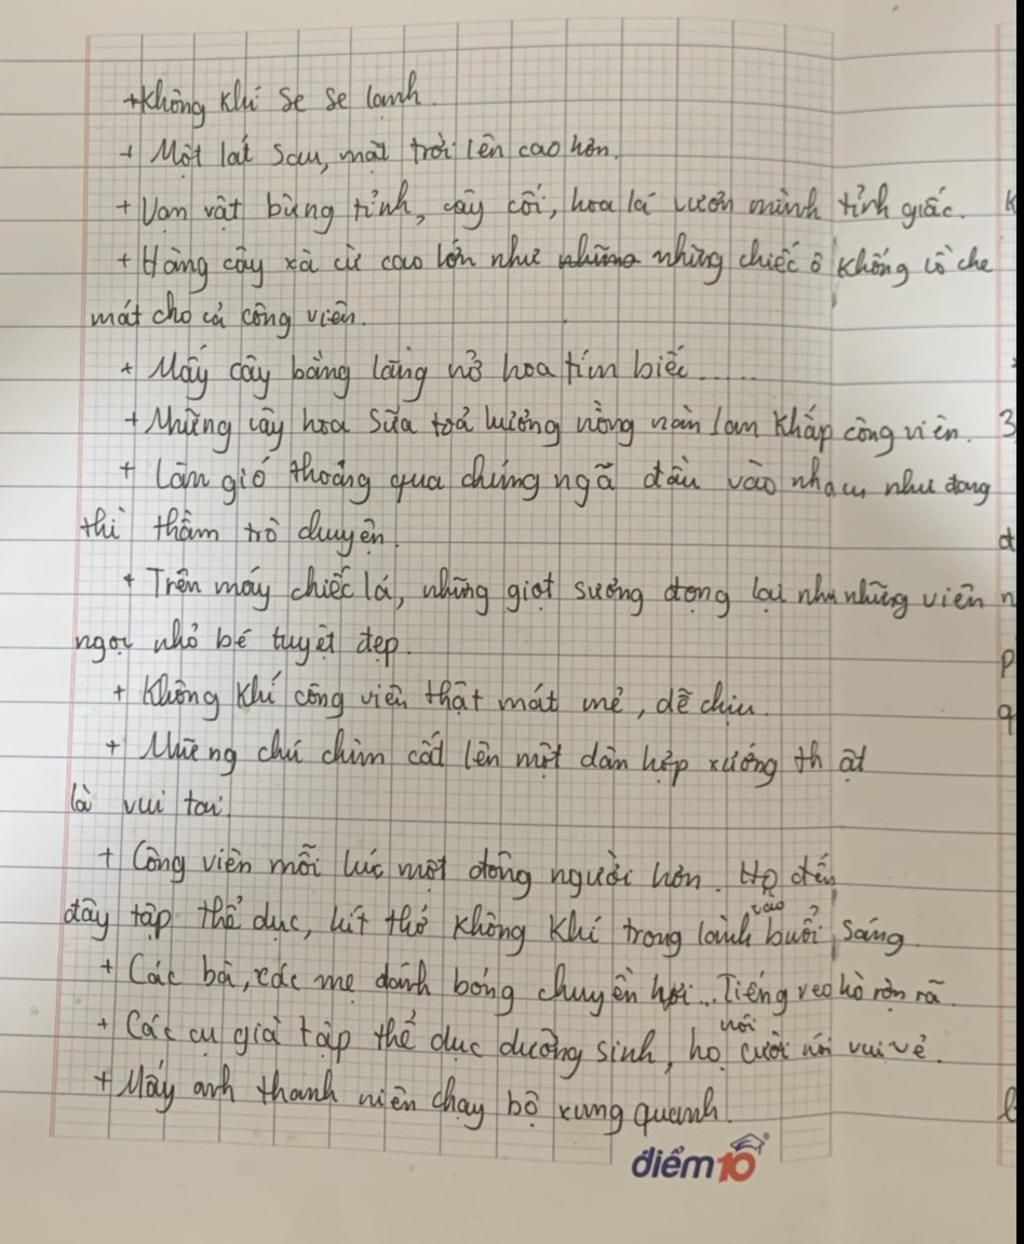 +Không khí se se lạnh.
+ Một lát sau, mặt trời lên cao hơn.
+ Vạn vật bừng tỉnh, cây cối, hoa lá vươn mình tỉnh giấc.
+ Hàng cây xà cừ cao lớn như những những chiếc ô khổng lồ che
mát cho cả công viên.
+ Mấy cây bằng lăng nở hoa tím biếc.....
+ Những cây hoa sữa toả hương nồng nàn lan khắp công viên.
+ Làn gió thoảng qua chúng ngã đầu vào nhau, như đang
thì thầm trò chuyện.
+ Trên mấy chiếc lá, những giọt sương đọng lại như những viên
ngọc nhỏ bé tuyệt đẹp.
+ Không khí công viên thật mát mẻ, dễ chịu.
+ Những chú chim cất lên một dàn hợp xướng thật
là vui tai.
+ Công viên mỗi lúc một đông người hơn. Họ đến
đây tập thể dục, hít thở không khí trong lành vào buổi sáng.
+ Các bà, các mẹ đánh bóng chuyền hơi... Tiếng reo hò rộn rã.
+ Các cụ già tập thể dục dưỡng sinh, họ nói cười nói vui vẻ.
+ Mấy anh thanh niên chạy bộ xung quanh.
điểm10